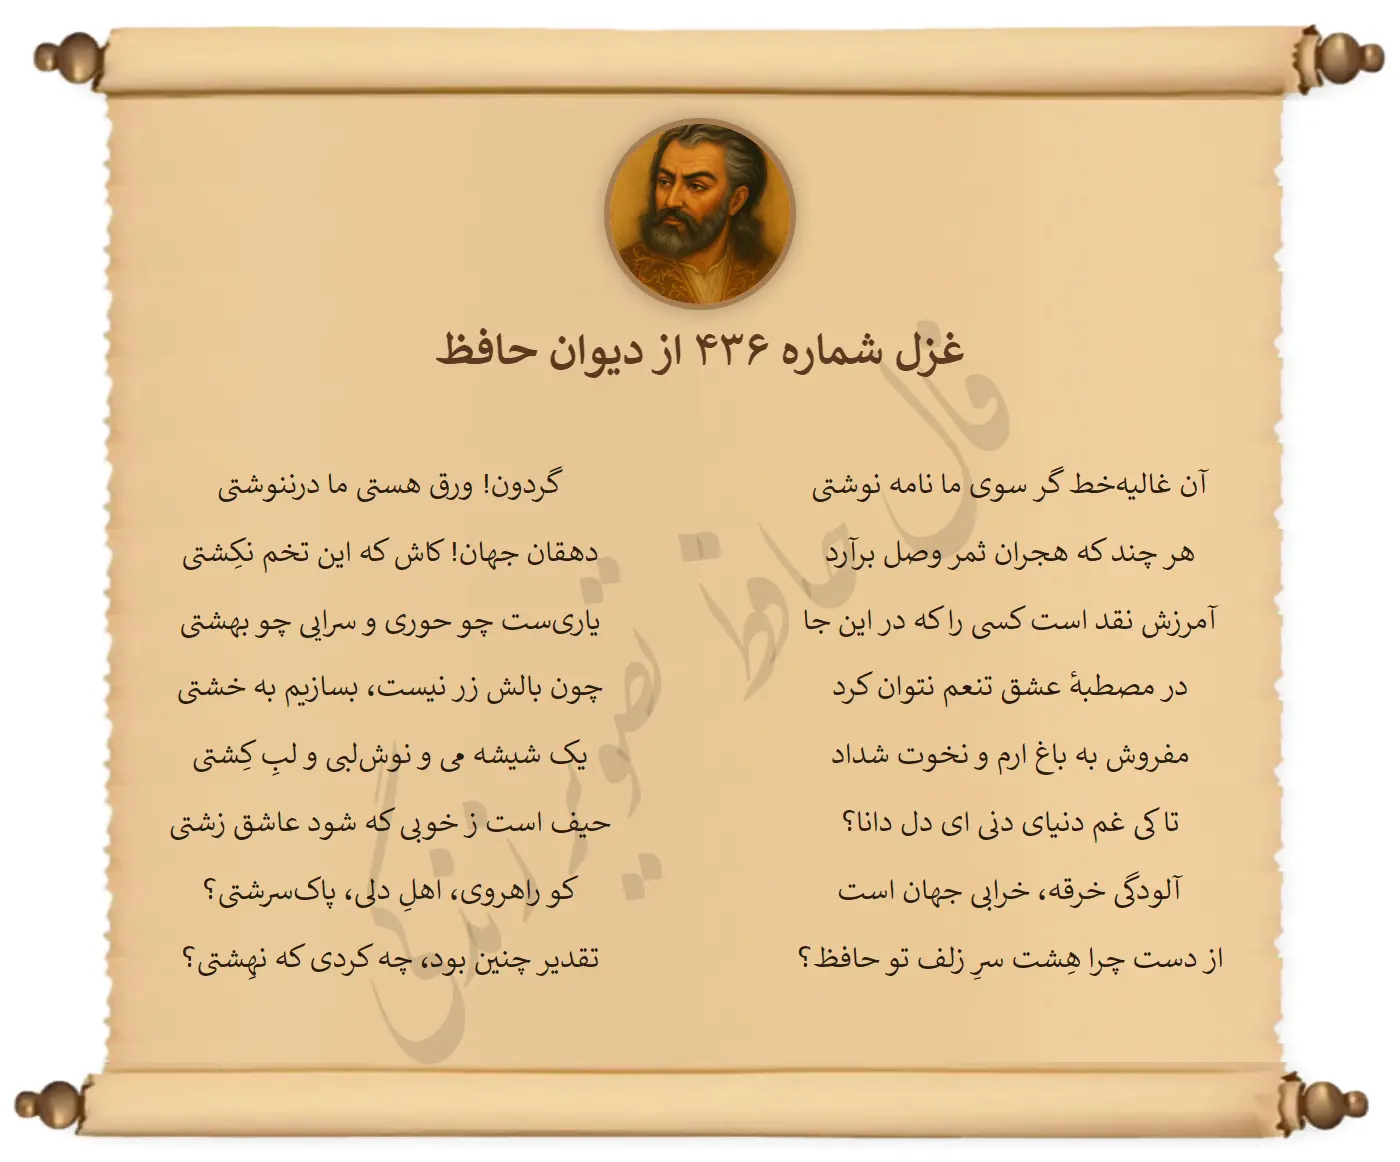 غزل شماره ۴۳۶ از دیوان حافظ
آن غالیه‌خط گر سوی ما نامه نوشتی
گردون! ورق هستی ما درننوشتی
هر چند که هجران ثمر وصل برآرد
دهقان جهان! کاش که این تخم نکِشتی
آمرزش نقد است کسی را که در این جا
یاری‌ست چو حوری و سرایی چو بهشتی
در مصطبهٔ عشق تنعم نتوان کرد
چون بالش زر نیست، بسازیم به خشتی
مفروش به باغ ارم و نخوت شداد
یک شیشه می و نوش‌لبی و لبِ کِشتی
تا کی غم دنیای دنی ای دل دانا؟
حیف است ز خوبی که شود عاشق زشتی
آلودگی خرقه، خرابی جهان است
کو راهروی، اهلِ دلی، پاک‌سرشتی؟
از دست چرا هِشت سرِ زلف تو حافظ؟
تقدیر چنین بود، چه کردی که نهِشتی؟
فال حافظ تصویر زندگی